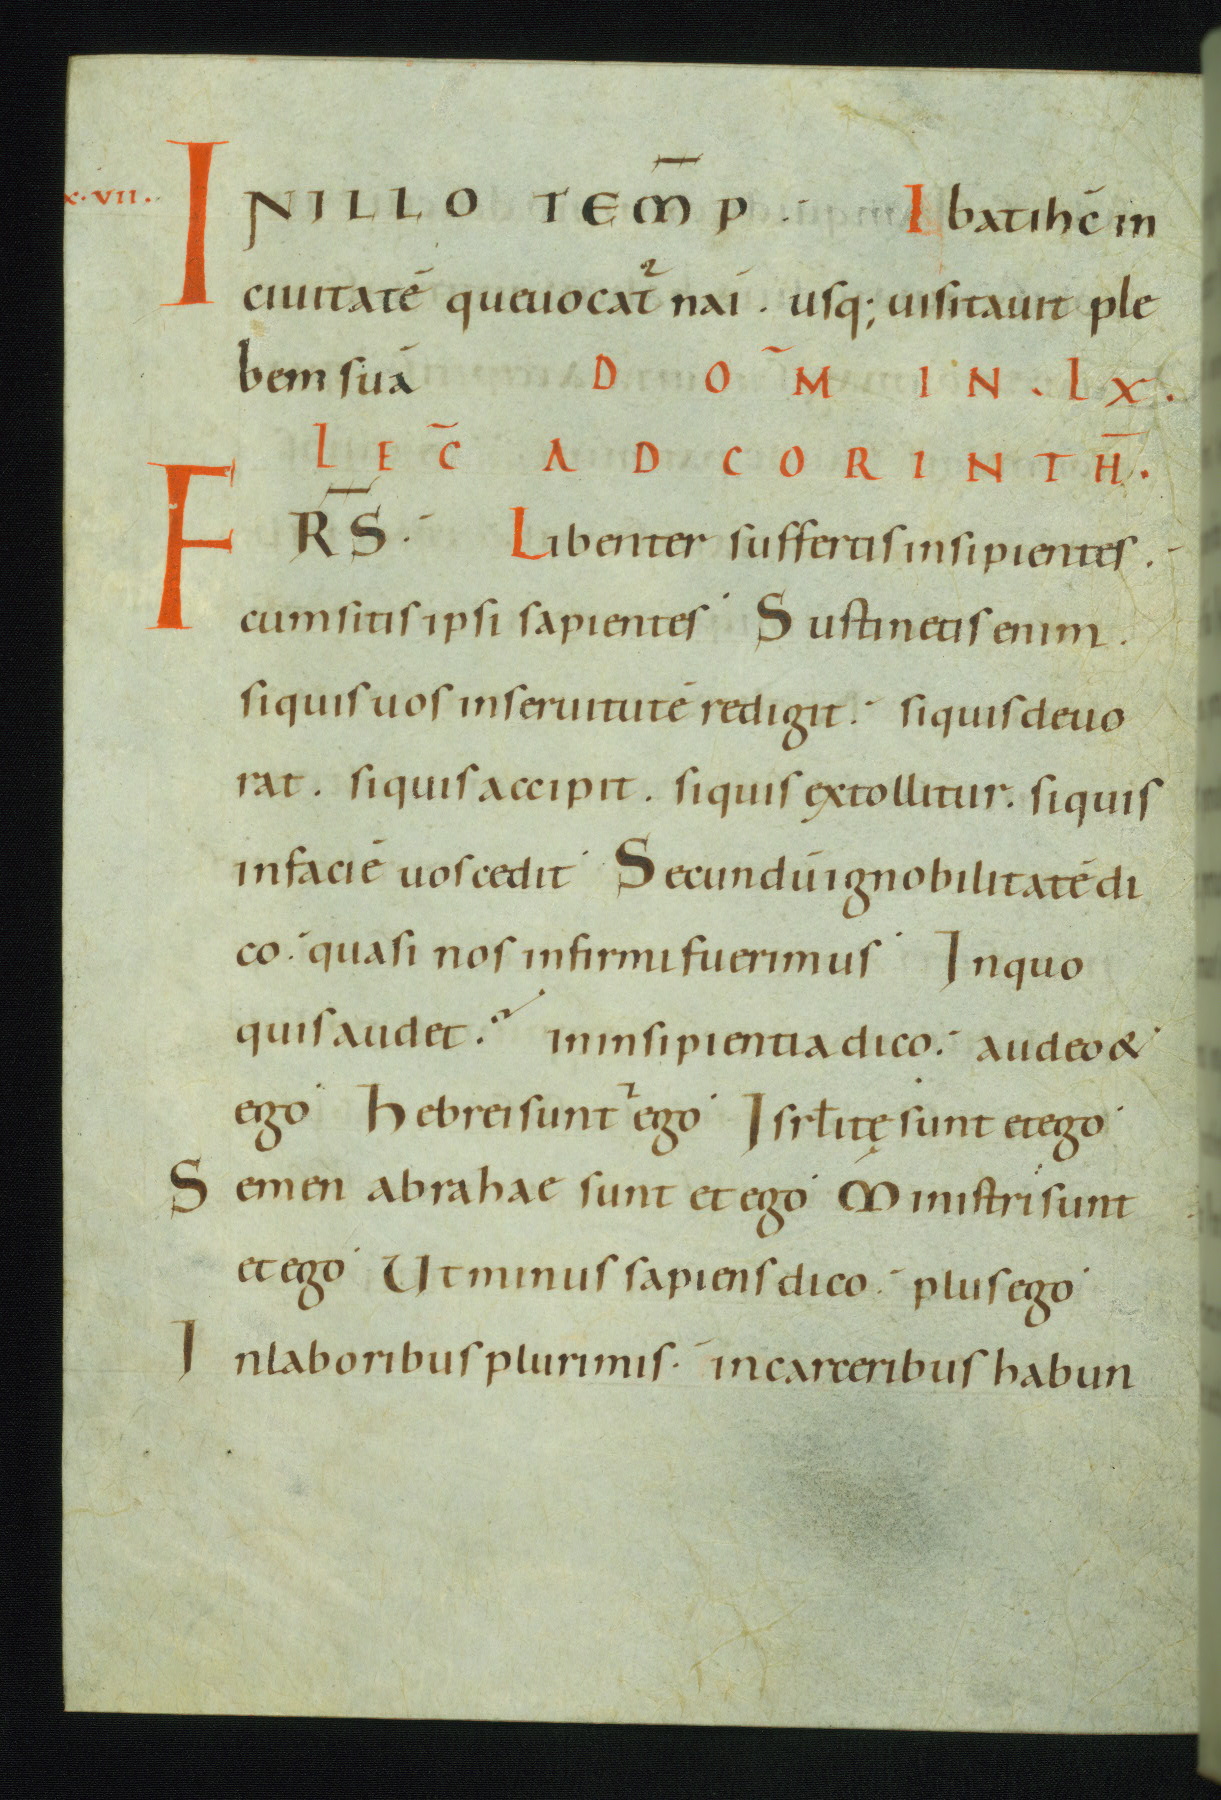 x·vii·
INILLO TEM̄P·: Ibat ih̄c in
ciuitatē que uocat᷑ naī. usq; uisitauit ple
bem suā DOM̄ IN. LX.
LEC̄ AD CORINTH̄.
FRS̄·: Libenter suffertis insipientes.
cum sitis ipsi sapientes· Sustinetis enim.
si quis uos in seruitutē redigit·: si quis deuo
rat. si quis accipit. si quis extollitur. si quis
in faciē uos cedit· Secundū ignobilitatē di
co·: quasi nos infirmi fuerimus· In quo
quis audet·: in insipientia dico·: audeo &
ego· Hebrei sunt ⁊ ego· Isrl̄itę sunt et ego·
Semen abrahae sunt et ego· Ministri sunt
et ego· Ut minus sapiens dico·: plus ego·
In laboribus plurimis·: in carceribus habun